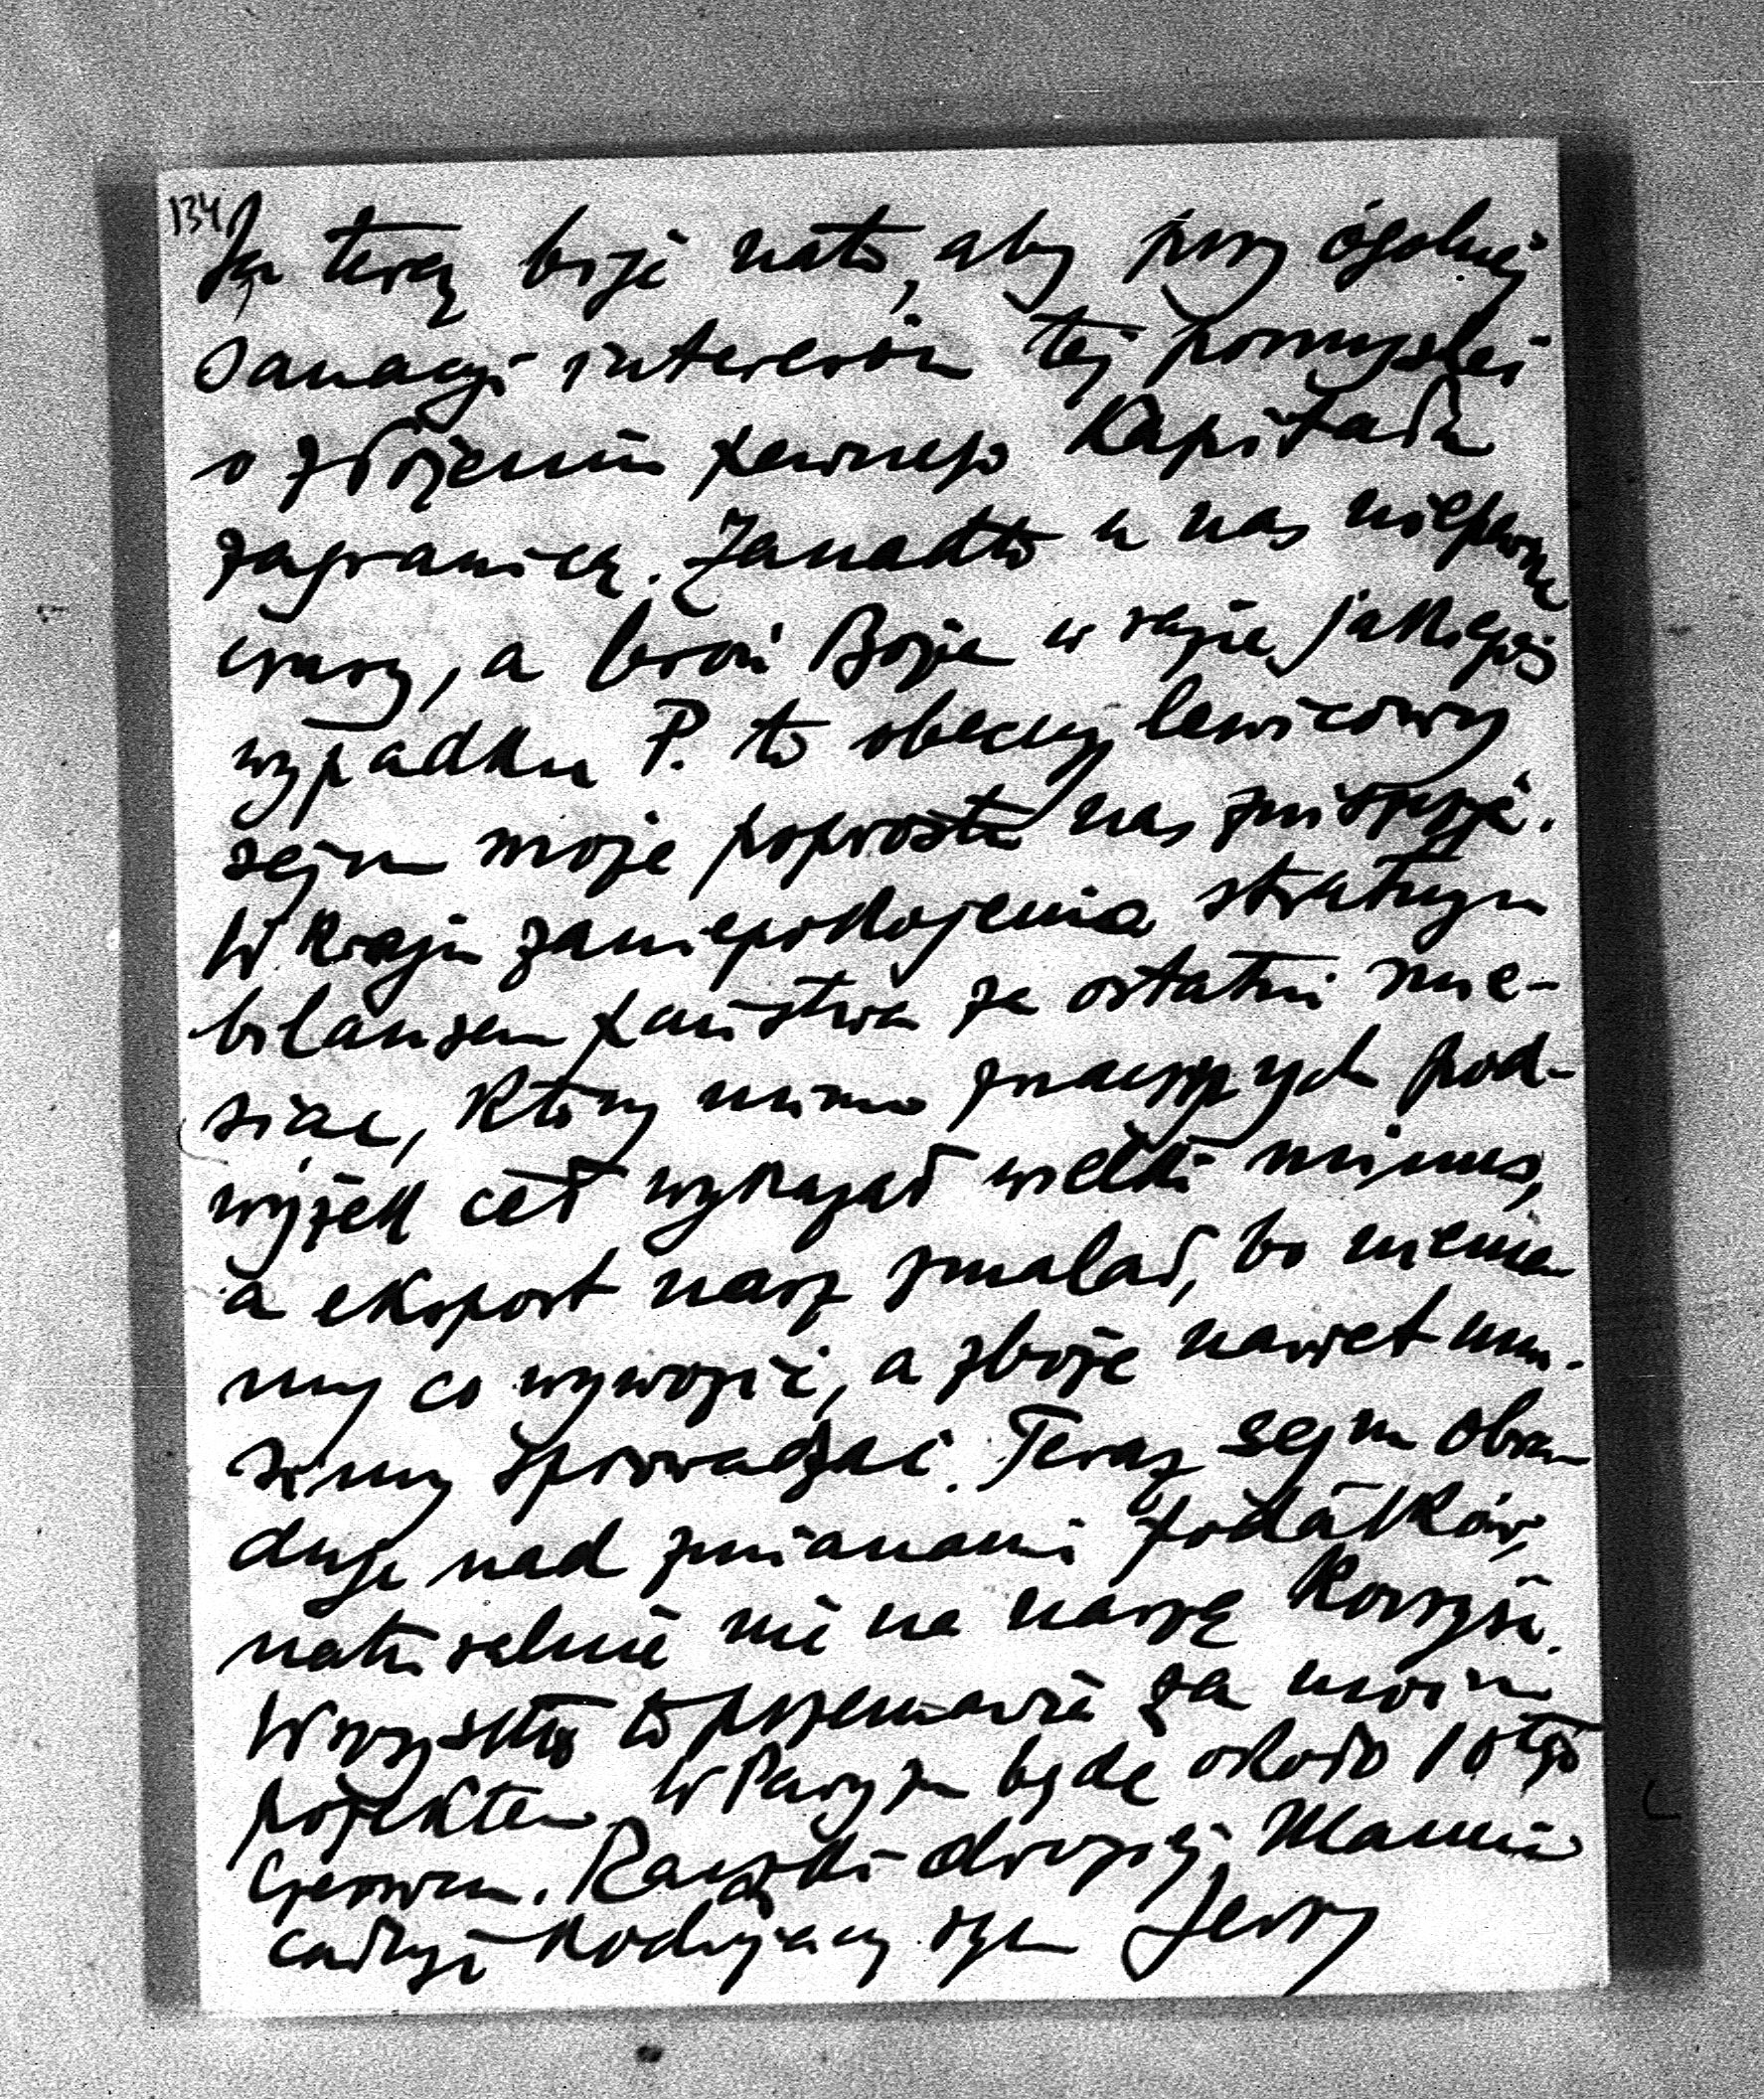 134
Ja teraz biję na to, aby przy ogólnej
sanacyi interesów tej pomyśleć
o złożeniu pewnego kapitału
zagranicą. Zanadto u nas niepewne
czasy, a broń Boże w razie jakiegoś
wypadku P. to obecny lewicowy
sejm może poprostu nas zniszczyć.
W kraju zaniepokojenie stratnym
bilansem państwa za ostatni mie-
siąc, który mimo znacznych pod-
wyżek ceł wykazał wielki minus,
a eksport nasz zmalał, bo niema
my co wywozić, a zboże nawet mu-
simy sprowadzać. Teraz sejm obra
duje nad zmianami podatków,
naturalnie nie na naszą korzyść.
Wszystko to przemawia za moim
projektem. W Paryżu będę około 10tego
Czerwca. Rączki drogiej Mamie
całuję kochający syn Jerzy